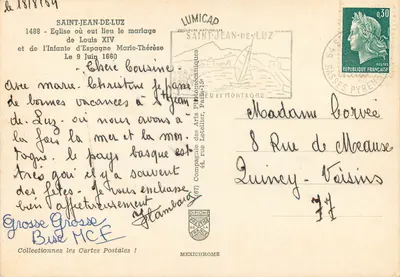 le 18/8/69
SAINT-JEAN-DE-LUZ
1488 - Eglise où eut lieu le mariage
de Louis XIV
et de l'Infante d'Espagne Marie-Thérèse
Le 9 Juin 1660
Chère Cousine -
Avec marie - Christine je fais
de bonnes vacances à St Jean
de - Luz - où nous avons à
la fois la mer et la mon-
tagne. le pays basque est
très gai il y a souvent
des fêtes - Je vous embrasse
bien affectueusement
Grosse Grosse
Bise MCF
Collectionnez les Cartes Postales !
LUMICAP
Compagnie des Arts Photomécaniques
44, rue Letellier, Paris-15e
MEXICHROME
SAINT-JEAN-DE-LUZ
MER ET MONTAGNE
0,30
REPUBLIQUE FRANÇAISE
POSTES
BASSES PYRENEES
Madame Corvée
8 Rue de Meaux
Quincy - Voisins
77